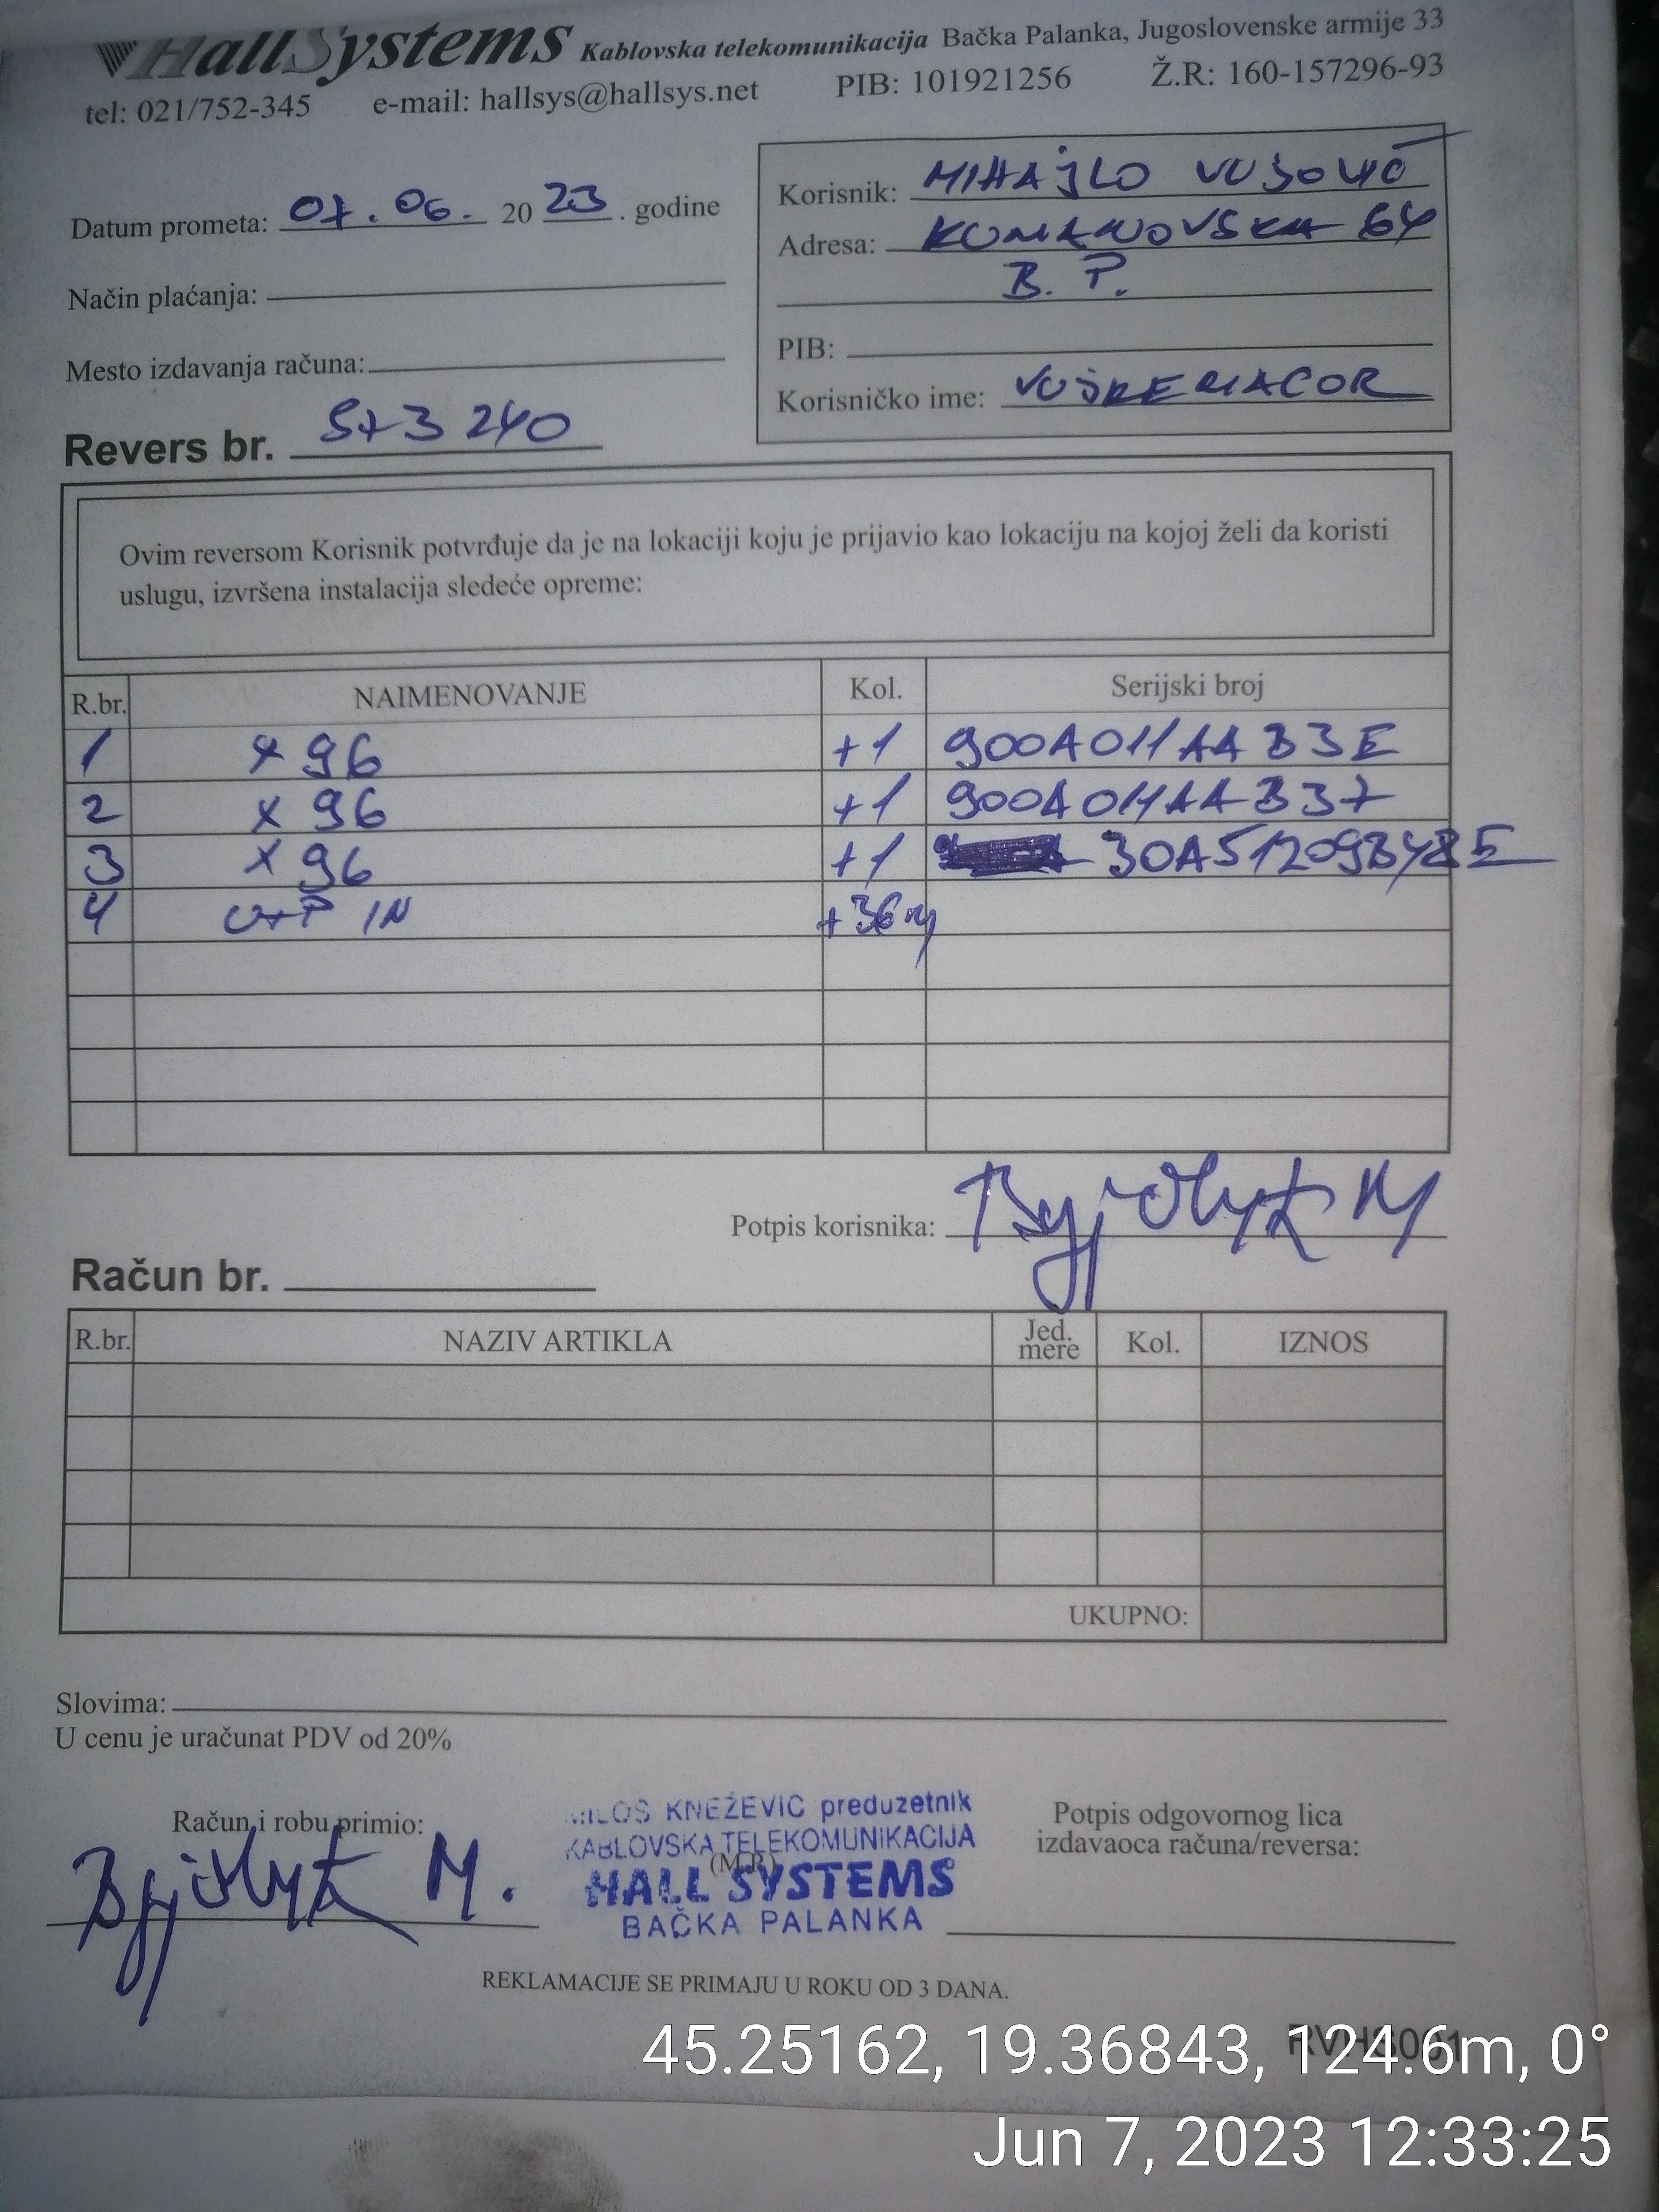 HallSystems Kablovska telekomunikacija Bačka Palanka, Jugoslovenske armije 33
tel: 021/752-345 e-mail: hallsys@hallsys.net PIB: 101921256 Ž.R: 160-157296-93
Datum prometa: 07. 06. 2023. godine
Način plaćanja:
Mesto izdavanja računa:
Revers br. 573 240
Korisnik: MIHAJLO
Adresa: KUMANOVSKA 64
B. P.
PIB:
Korisničko ime:
Ovim reversom Korisnik potvrđuje da je na lokaciji koju je prijavio kao lokaciju na kojoj želi da koristi
uslugu, izvršena instalacija sledeće opreme:
R.br. NAIMENOVANJE Kol. Serijski broj
1 X 96 +1 900A011AAB3E
2 X 96 +1 900A011AAB37
3 X 96 +1 30A512093482E
4 UTP IN +36m
Potpis korisnika:
Račun br.
R.br. NAZIV ARTIKLA Jed. mere Kol. IZNOS
UKUPNO:
Slovima:
U cenu je uračunat PDV od 20%
Račun i robu primio:
MILOŠ KNEŽEVIĆ preduzetnik
KABLOVSKA TELEKOMUNIKACIJA
(M.P.)
HALL SYSTEMS
BAČKA PALANKA
Potpis odgovornog lica
izdavaoca računa/reversa:
REKLAMACIJE SE PRIMAJU U ROKU OD 3 DANA.
RVHS001
45.25162, 19.36843, 124.6m, 0°
Jun 7, 2023 12:33:25